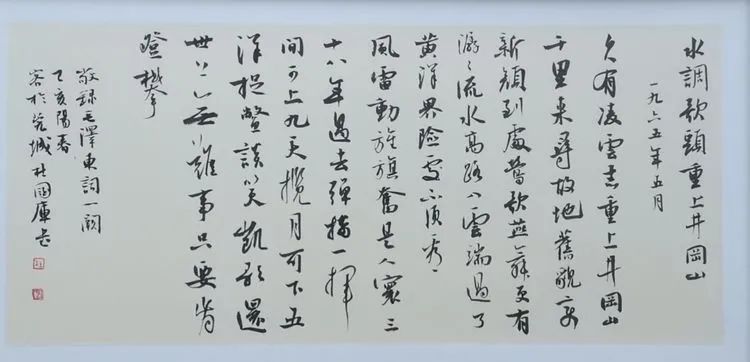 水調歌頭重上井岡山
一九六五年五月
久有凌雲志重上井岡山
千里来尋故地舊貌变
新顔到處鶯歌燕舞更有
潺〻流水高路入雲端過了
黄洋界險處不須看
風雷動旌旗奮是人寰三
十八年過去彈指一揮
間可上九天攬月可下五
洋捉鱉談笑凱歌還
世上無難事只要肯
登攀
敬録毛澤東詞一闋
乙亥陽春
客於莞城杜國庫书